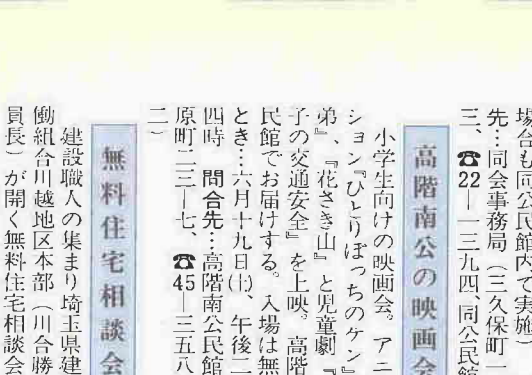 場合も同公民館内で実施)
先…同会事務局(三久保町一
三、☎22―一三九四、同公民館
高階南公の映画会
小学生向けの映画会。アニ
ション『ひとりぼっちのケン』
弟』、『花さき山』と児童劇『
子の交通安全』を上映。高階
民館でお届けする。入場は無
とき…六月十九日(土)、午後二
四時 問合先…高階南公民館
原町二三―七、☎45―三五八
二)
無料住宅相談会
建設職人の集まり埼玉県建
働組合川越地区本部(川合勝
員長)が開く無料住宅相談会